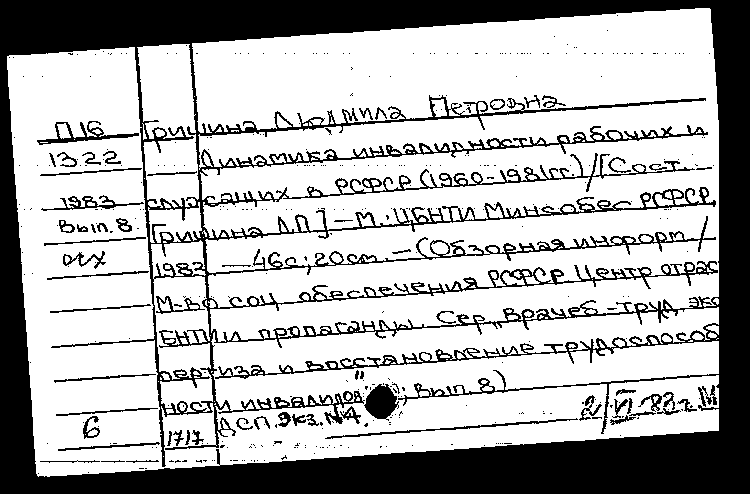 П16 Гришина, Людмила Петровна
1322 Динамика инвалидности рабочих и
1983 служащих в РСФСР (1960-1981гг.) / [Сост.
Вып. 8 Гришина Л.П.] - М.: ЦБНТИ Минсобес РСФСР,
1983. - 46с; 20см. - (Обзорная информ. /
М-во соц. обеспечения РСФСР. Центр отрас
БНТИ и пропаганды. Сер. "Врачеб-труд. экс
пертиза и восстановление трудоспособ
ности инвалидов"; Вып. 8)
6 1717 ДСП. Экз. №4. 2/VI-83г.